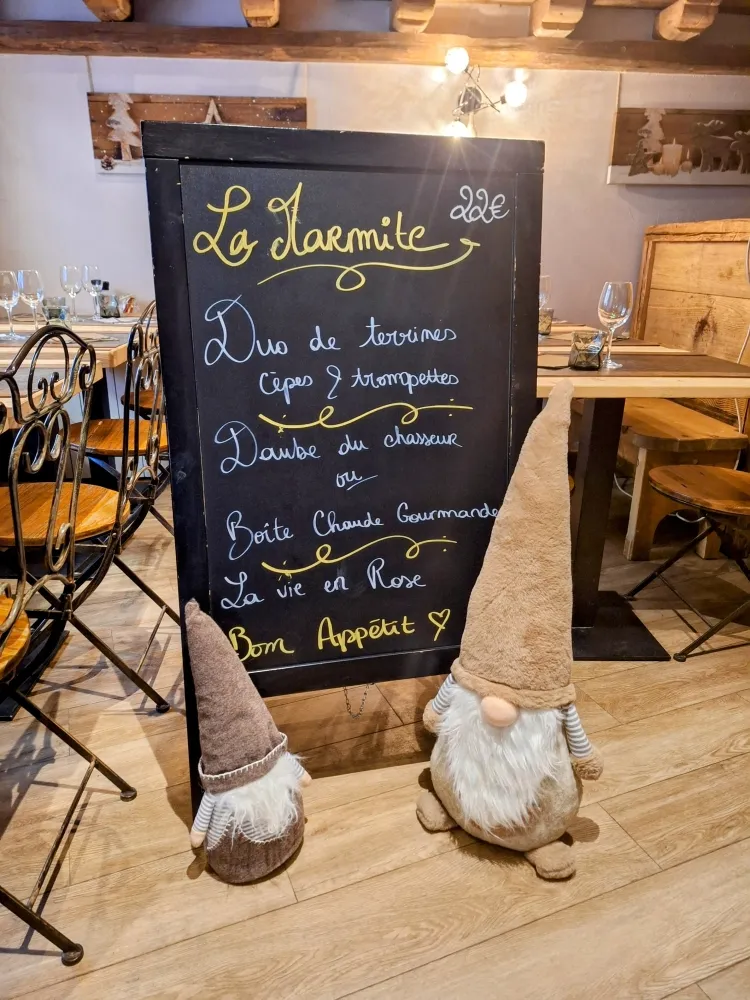 La Marmite
22€
Duo de terrines
Cèpes & trompettes
Daube du chasseur
ou
Boîte Chaude Gourmande
La vie en Rose
Bon Appétit